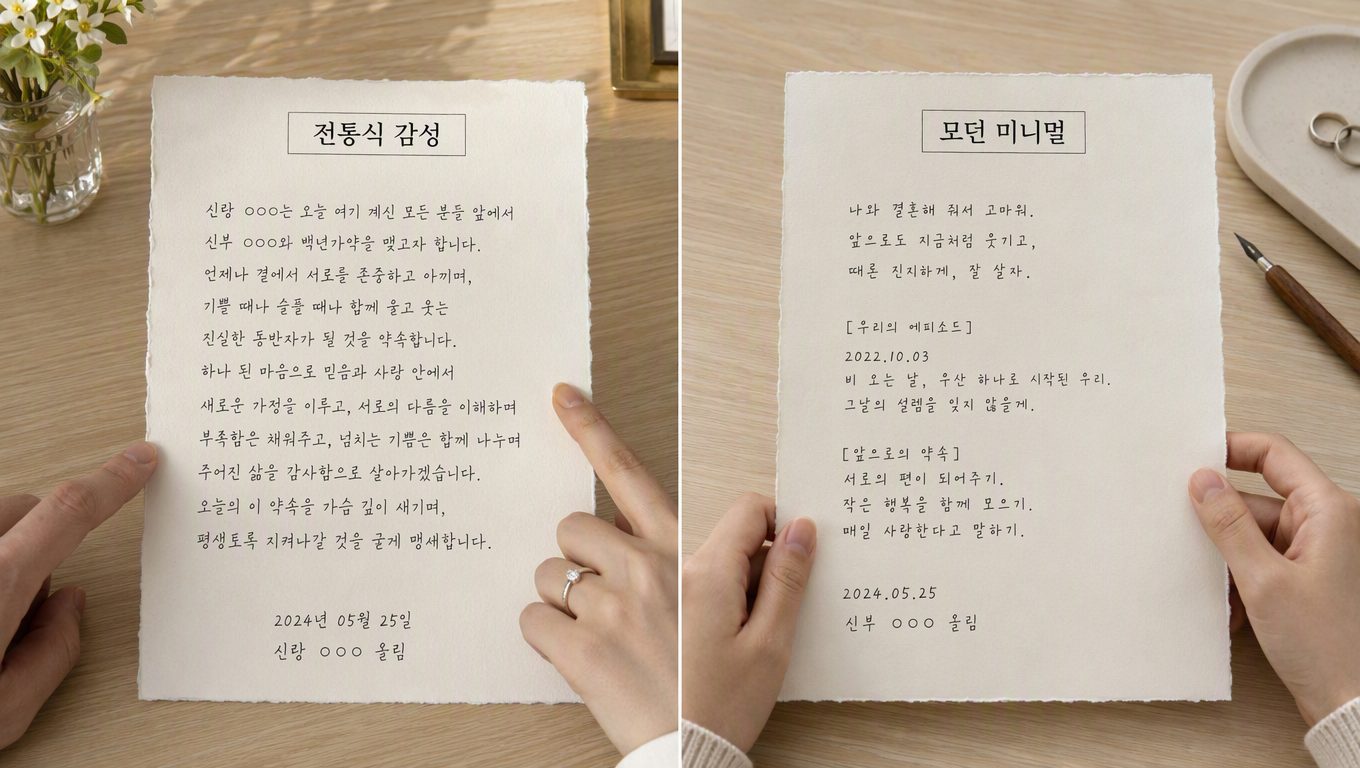 전통식 감성
신랑 ○○○는 오늘 여기 계신 모든 분들 앞에서
신부 ○○○와 백년가약을 맺고자 합니다.
언제나 곁에서 서로를 존중하고 아끼며,
기쁠 때나 슬플 때나 함께 울고 웃는
진실한 동반자가 될 것을 약속합니다.
하나 된 마음으로 믿음과 사랑 안에서
새로운 가정을 이루고, 서로의 다름을 이해하며
부족함은 채워주고, 넘치는 기쁨은 함께 나누며
주어진 삶을 감사함으로 살아가겠습니다.
오늘의 이 약속을 가슴 깊이 새기며,
평생토록 지켜나갈 것을 굳게 맹세합니다.
2024년 05월 25일
신랑 ○○○ 올림
모던 미니멀
나와 결혼해 줘서 고마워.
앞으로도 지금처럼 웃기고,
때론 진지하게, 잘 살자.
[우리의 에피소드]
2022.10.03
비 오는 날, 우산 하나로 시작된 우리.
그날의 설렘을 잊지 않을게.
[앞으로의 약속]
서로의 편이 되어주기.
작은 행복을 함께 모으기.
매일 사랑한다고 말하기.
2024.05.25
신부 ○○○ 올림